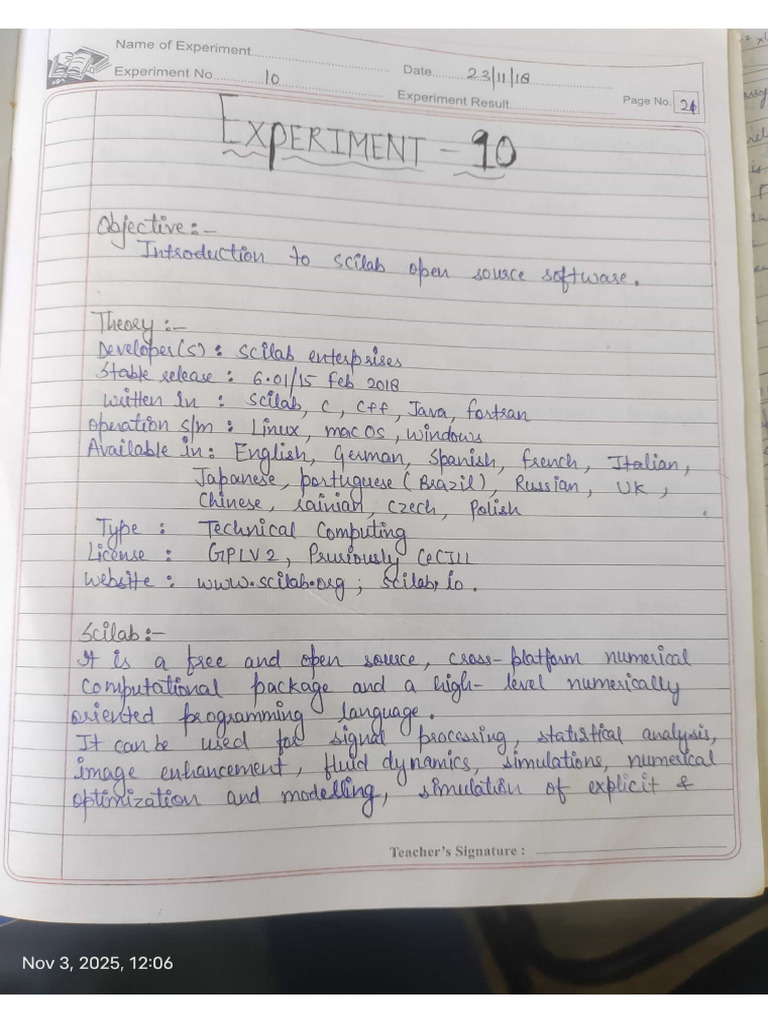 Name of Experiment
Date 23/11/18
Experiment No. 10
Experiment Result
Page No. 21
EXPERIMENT - 10
Objective :-
Introduction to scilab open source software.
Theory :-
Developer(s) : scilab enterprises
Stable release : 6.01/15 Feb 2018
Written in : scilab, C, C++, Java, fortran
operation s/m : Linux, mac OS, windows
Available in : English, German, Spanish, french, Italian,
Japanese, portuguese (Brazil), Russian, UK,
Chinese, rainian, czech, Polish
Type : Technical Computing
License : GPLV2, Previously CeCILL
website : www.scilab.org ; scilab.io.
Scilab :-
It is a free and open source, cross-platform numerical
computational package and a high- level numerically
oriented programming language.
It can be used for signal processing, statistical analysis,
image enhancement, fluid dynamics, simulations, numerical
optimization and modelling, simulation of explicit &
Teacher's Signature :
Nov 3, 2025, 12:06